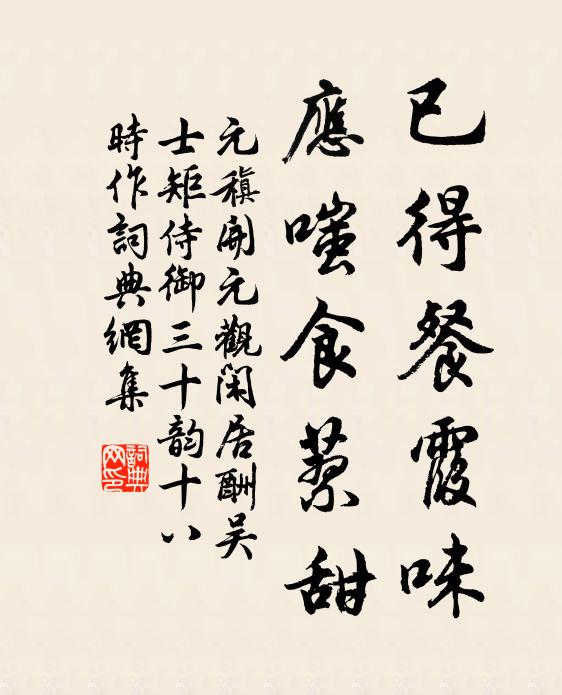 已得餐霞味
應嗤食蓼甜
元稹開元觀閑居酬吳
士矩侍御三十韵十八
時作詞典網集
詞典
網印